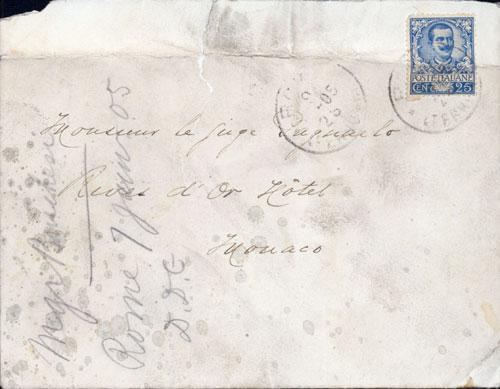 POSTE ITALIANE
CEN 25
Monsieur le Juge
Rives d'Or Hôtel
Monaco
Rome 7 June 05
D.D.C